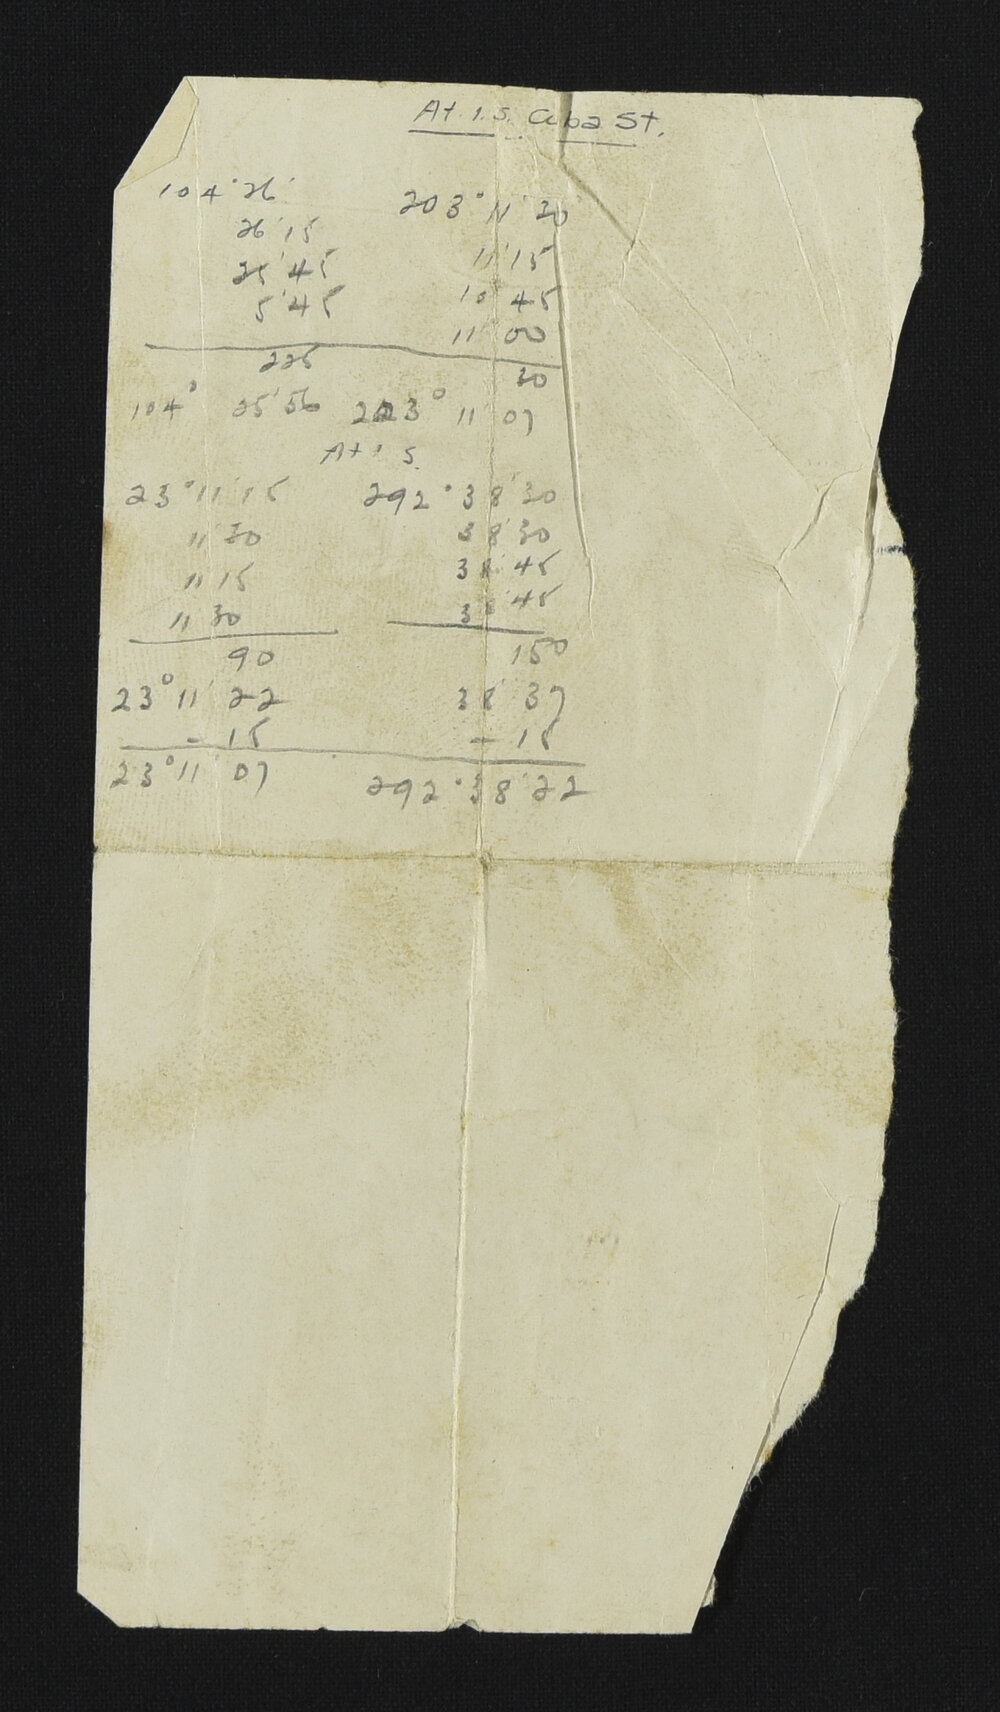 At I.S. Cuba St.
104° 26' 203° 11' 30
26' 15 11' 15
25' 45 10' 45
5' 45 11' 00
225 30
104° 25' 56 203° 11' 07
At I S.
23° 11' 15 292° 38' 30
11' 30 38' 30
11' 15 38' 45
11' 30 38' 45
90 150
23° 11' 22 38' 37
- 15 - 15
23° 11' 07 292° 38' 22